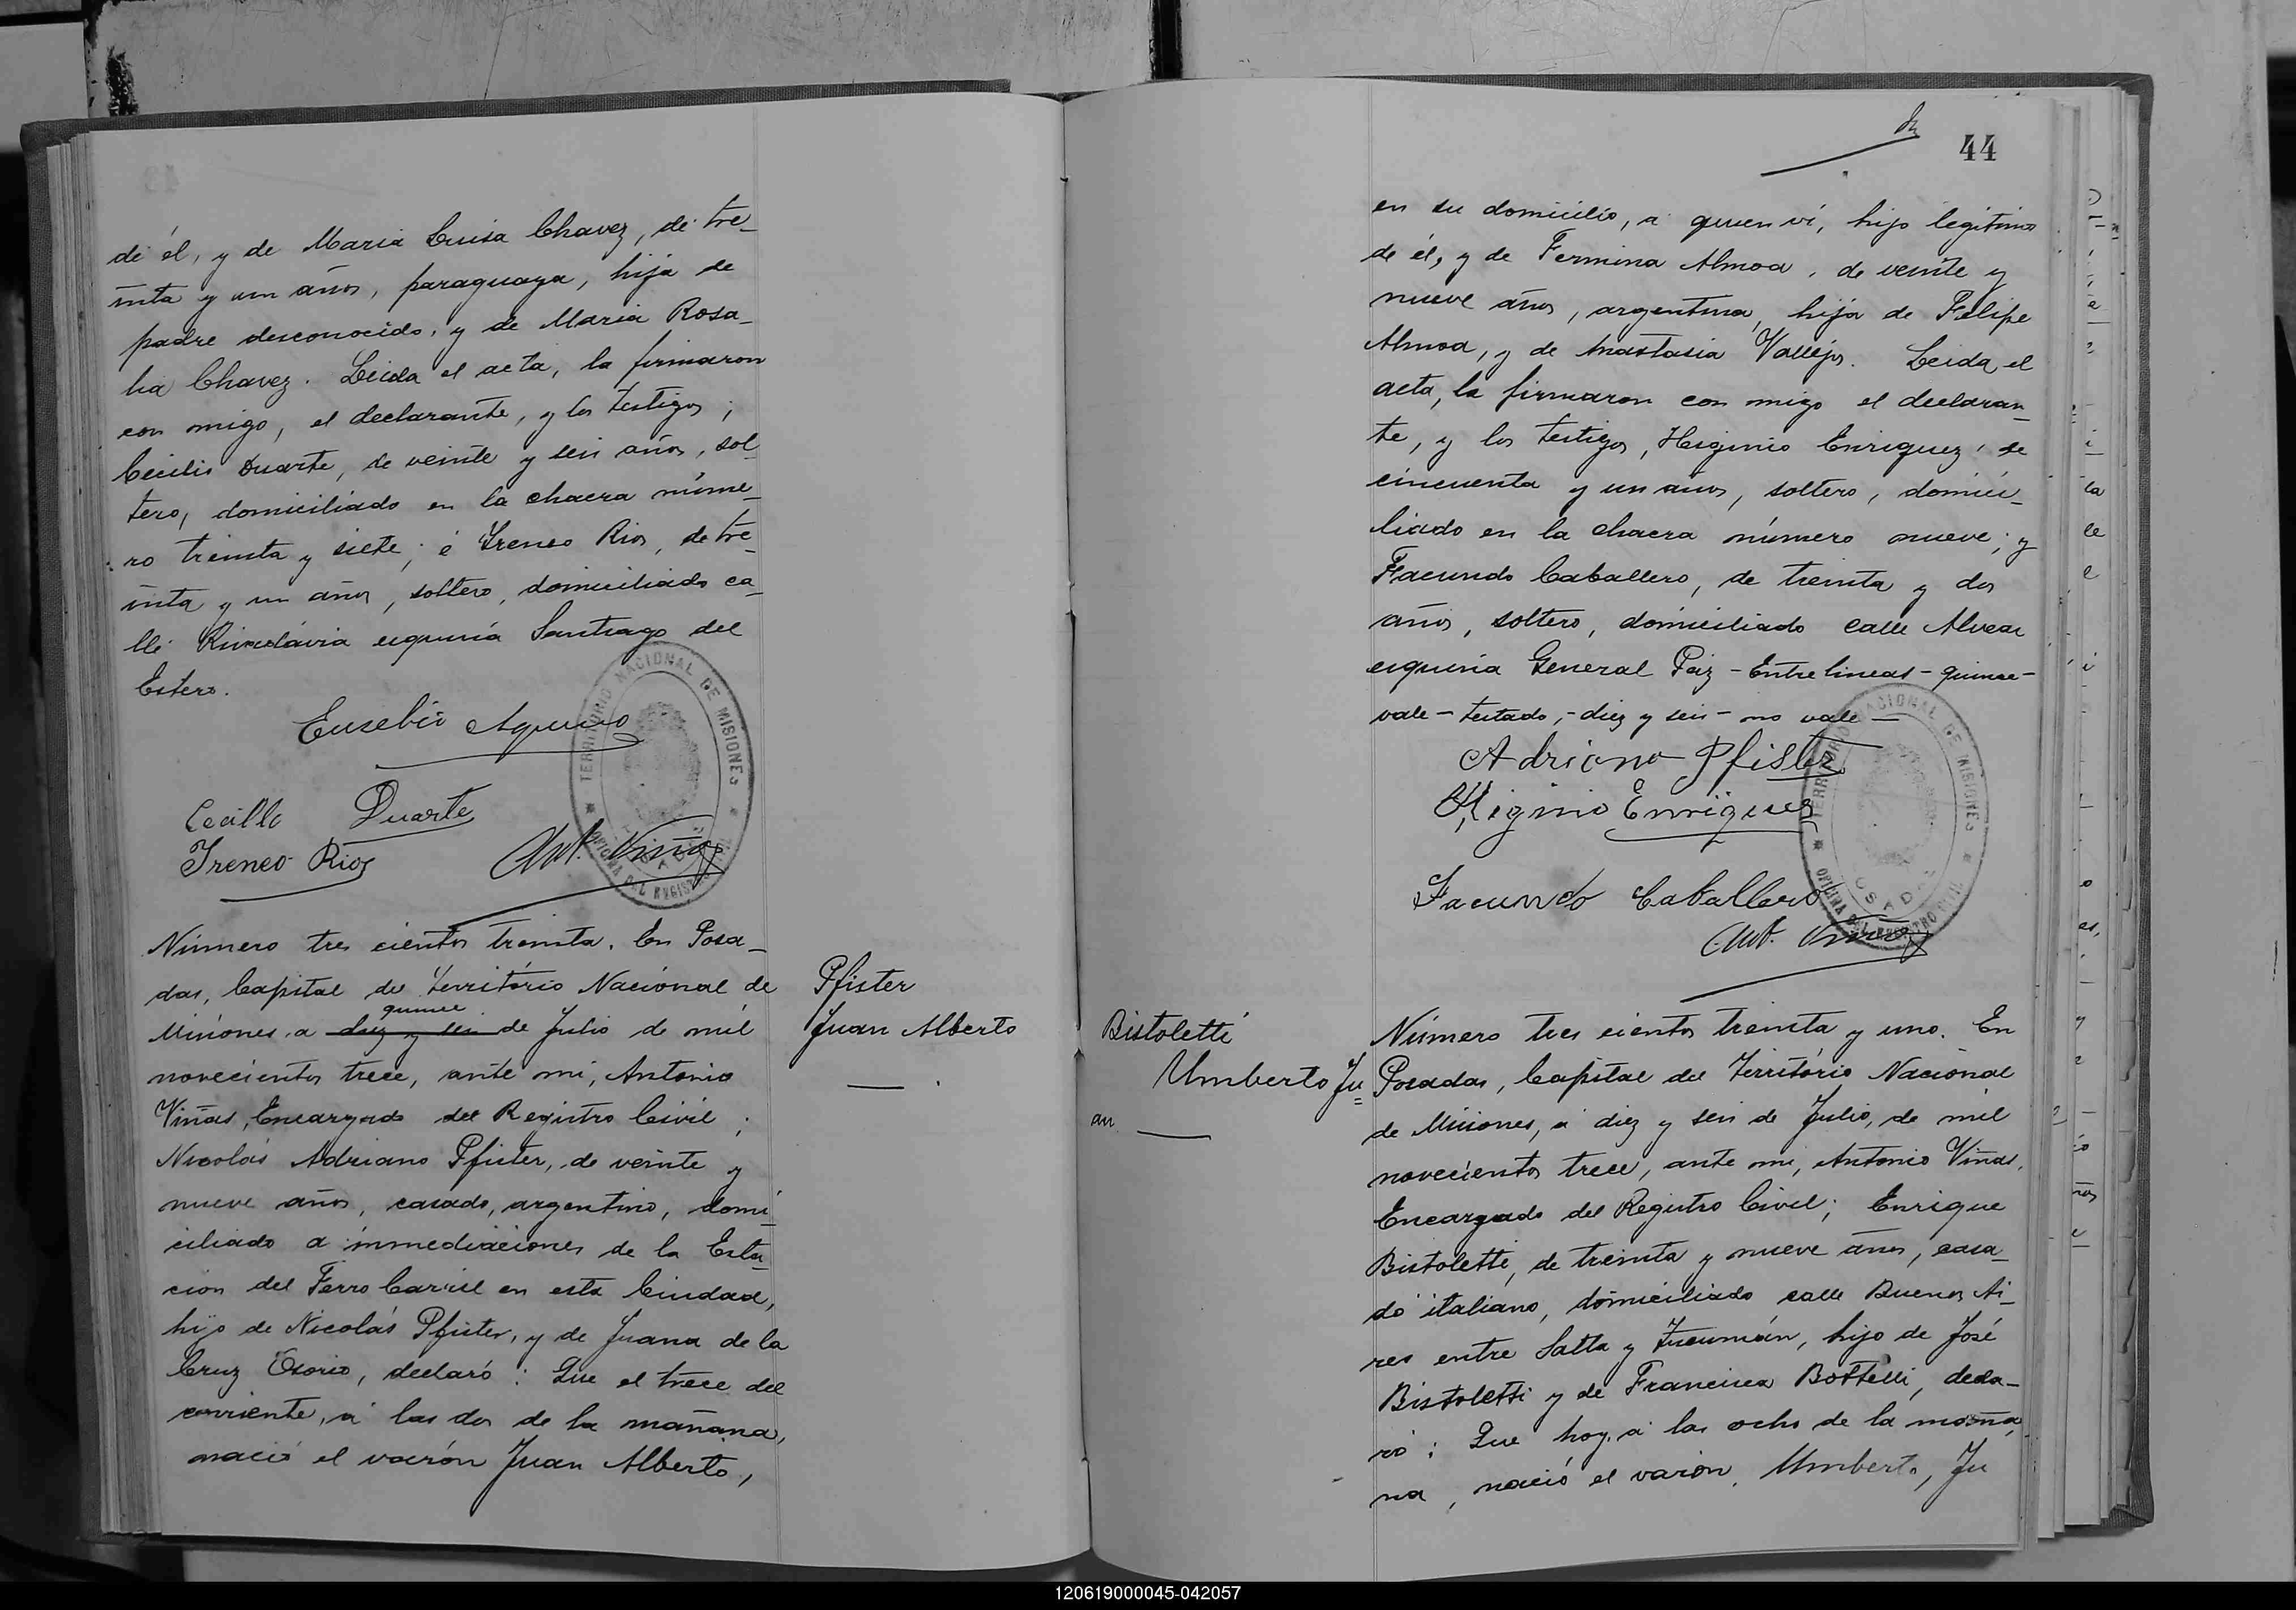 de él, y de Maria Luisa Chavez, de tre_
inta y un años, paraguaya, hija de
padre desconocido, y de Maria Rosa_
lia Chavez. Leida el acta, la firmaron
con migo, el declarante, y los testigos;
Cecilio Duarte, de veinte y seis años, sol_
tero, domiciliado en la chacra núme_
ro treinta y siete; é Ireneo Rios, de tre_
inta y un años, soltero, domiciliado ca_
lle Rivadavia esquina Santiago del
Estero.
Eusebio Aquino
Cecilio Duarte
Ireneo Rios
Ant. Viñas
TERRITORIO NACIONAL DE MISIONES
OFICINA DEL REGISTRO CIVIL
Número tres cientos treinta. En Posa_
das, Capital del Territorio Nacional de
quince
Misiones, a diez y seis de Julio de mil
novecientos trece, ante mi, Antonio
Viñas, Encargado del Registro Civil;
Nicolás Adriano Pfister, de veinte y
nueve años, casado, argentino, domi_
ciliado a inmediaciones de la Esta_
cion del Ferro Carril en esta Ciudad,
hijo de Nicolás Pfister, y de Juana de la
Cruz Osorio, declaró: Que el trece del
corriente, a las dos de la mañana,
nació el varón Juan Alberto,
Pfister
Juan Alberto
44
en su domicilio, a quien ví, hijo legitimo
de él, y de Fermina Almoa, de veinte y
nueve años, argentina, hija de Felipe
Almoa, y de Anastasia Vallejos. Leida el
acta, la firmaron con migo el declaran_
te, y los testigos, Higinio Enriquez, de
cincuenta y un años, soltero, domici_
liado en la chacra número nueve; y
Facundo Caballero, de treinta y dos
años, soltero, domiciliado calle Alvear
esquina General Paz - Entre lineas - quince -
vale - testado, - diez y seis - no vale -
Adriano Pfister
Higinio Enriquez
Facundo Caballero
Ant. Viñas
TERRITORIO NACIONAL DE MISIONES
OFICINA DEL REGISTRO CIVIL
POSADAS
Bistoletti
Umberto Ju=
an
Número tres cientos treinta y uno. En
Posadas, Capital del Territorio Nacional
de Misiones, a diez y seis de Julio, de mil
novecientos trece, ante mi, Antonio Viñas,
Encargado del Registro Civil; Enrique
Bistoletti, de treinta y nueve años, casa_
do italiano, domiciliado calle Buenos Ai_
res entre Salta y Tucumán, hijo de José
Bistoletti y de Francisca Bottelli, decla_
ró: Que hoy, a las ocho de la maña_
na, nació el varón, Umberto, Ju
120619000045-042057